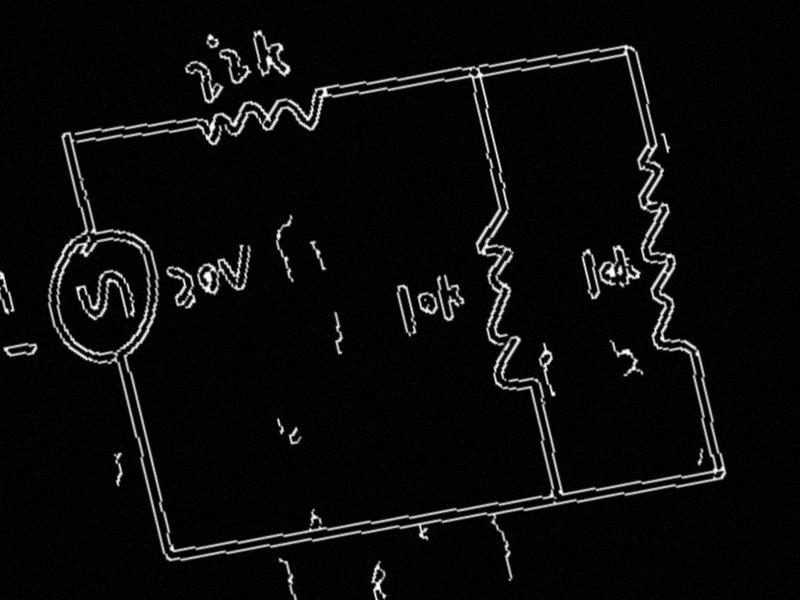 2.2k
20V
10k
10k